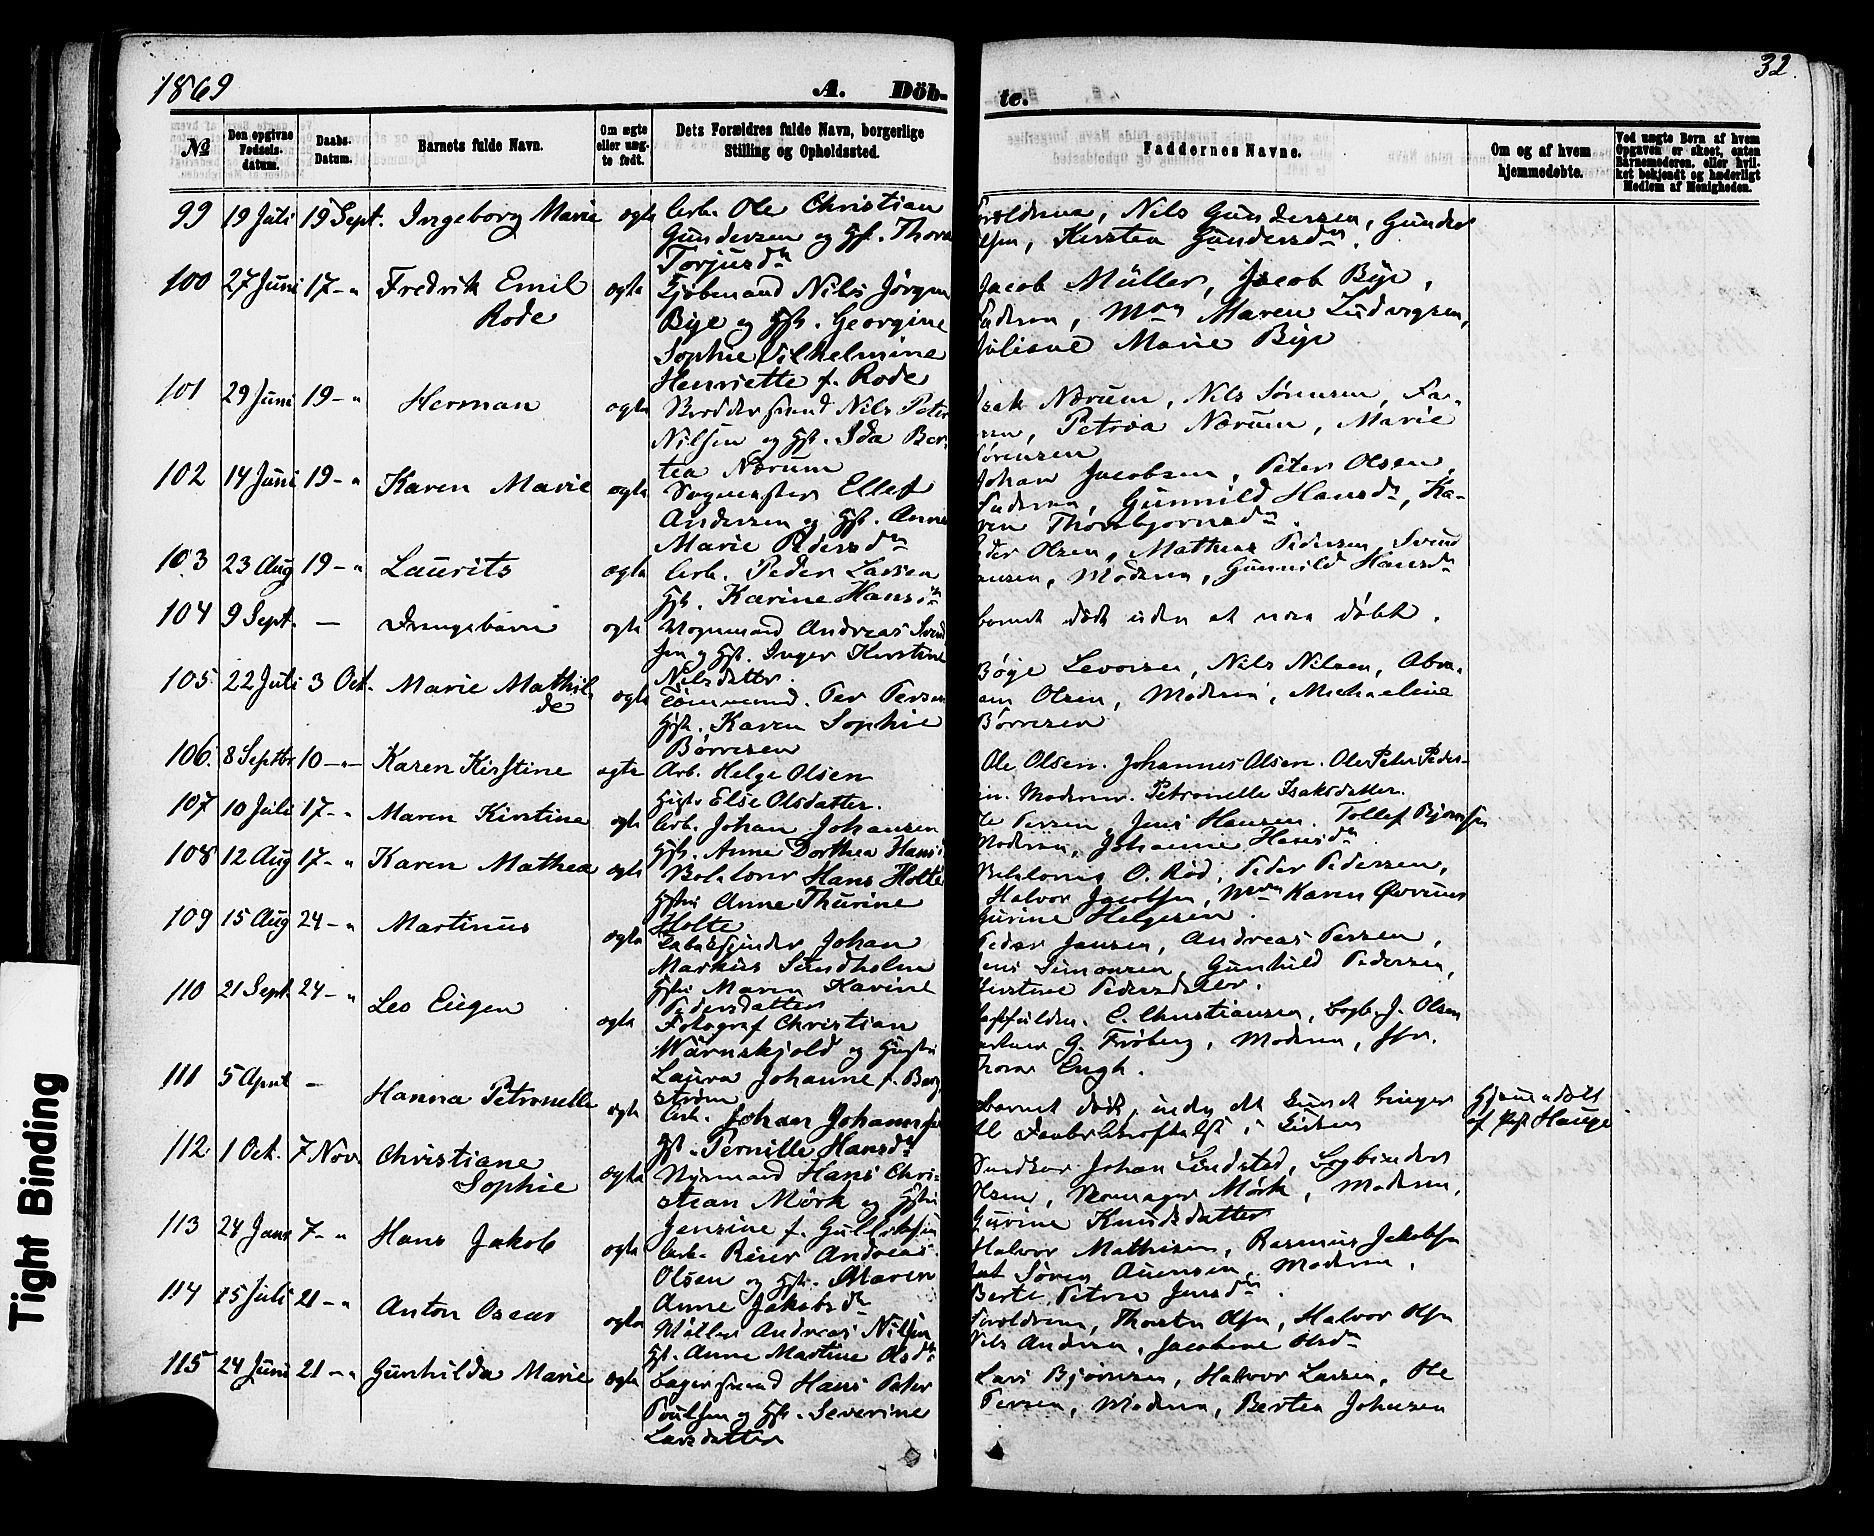 1869
A. Döb-
te.
32.
№
Den opgivne Fødsels-datum.
Daabs-Datum.
Barnets fulde Navn.
Om ægte eller uægte født.
Dets Forældres fulde Navn, borgerlige Stilling og Opholdssted.
Faddernes Navne.
Om og af hvem hjemmedøbte.
Ved uægte Børn af hvem Opgaven er skeet, enten Barnemoderen, eller hvilket bekjendt og hæderligt Medlem af Menigheden.
99 19 Juli 19 Sept. Ingeborg Marie ægte Arb. Ole Christian
Gundersen og Hst. Thora
Torjusdtr
Nils Gundersen, Gunder
Kirsten Gundersdtr.
100 27 Juni 17 - " Fredrik Emil
Rode
ægte Kjøbmand Nils Jørgen
Bye og Hst. Georgine
Sophie Vilhelmine
Henriette f. Rode
Jacob Müller, Jacob Bye,
Faderen, Mdm Maren Ludvigsen,
Juliane Marie Bye
101 29 Juni 19 - " Herman ægte Nils Peter
Nilsen og Hst. Ida Ber-
tea Nærum
Isak Nærum, Nils Sørensen, Fa-
Petrea Nærum, Marie
Sørensen
102 14 Juni 19 - " Karen Marie ægte Ellef
Andersen og Hst. Anne
Marie Pedersdtr
Johan Jacobsen, Peter Olsen,
Faderen, Gunnild Hansdtr, Ka-
ren Thorbjørnsdtr.
103 23 Aug 19 - " Laurits ægte Arb. Peder Larsen
Hst. Karine Hansdtr
Peder Olsen, Mathias Pedersen, Svend
Hansen, Moderen, Gunnild Hansdtr
104 9 Sept. — Drengebarn ægte Vognmand Andreas Svend
sen og Hst. Inger Kirstine
Nilsdatter.
barnet døde uden at være døbt.
105 22 Juli 3 Oct. Marie Mathil
de
ægte Tømmermand. Per Persen
Hst. Karen Sophie
Børresen
Bøye Levorsen, Nils Nilsen, Abra-
ham Olsen, Moderen, Michaeline
Børresen
106. 8 Septbr 10 - " Karen Kirstine ægte Arb. Helge Olsen
Hust. Else Olsdatter.
Ole Olsen. Johannes Olsen. Ole Peter Peder-
sen. Moderen. Petronelle Isaksdatter.
107 10 Juli 17 - " Maren Kirstine ægte Arb. Johan Johansen
Hst. Anne Dorthea Hans
Ole Persen, Jens Hansen. Tollef Bjørnsen
Moderen, Johanne Hansdtr
108 12 Aug 17 - " Karen Mathea ægte Hans Holte
Hstr. Anne Thurine
Holte
O. Rød, Peder Pedersen,
Halvor Jacobsen, Mdm Karen Øverum
Gurine Helgesen.
109 15 Aug 24 - " Martinus ægte Tobakspinder Johan
Markus Sundholm
Hstr Maren Karine
Pedersdatter
Peder Jansen, Andreas Persen,
Jens Simonsen, Gunhild Pedersen,
Kirstine Pedersdatter.
110 21 Sept. 24 - " Leo Eugen ægte Fotograf Christian
Wärnskjold og Hustru
Laura Johanne f. Berg
ström
C. Christiansen, Bogb. J. Olsen
G. Frøberg, Moderen, Frk.
Thora Engh.
111 5 April — Hanna Petronelle ægte Arb. Johan Johannesen
Hst. Pernille Hansdtr
Barnet døde, inden det kunde bringes
til Daabsbekræftelse i Kirken
Hjemmedøbt
af Hauge
112. 1 Oct. 7 Nov. Christiane
Sophie
ægte Hans Chri-
stian Mörk og Hstru
Jensine f. Gulliksen
Snedker Johan Lindsted, Bogbinder
Olsen, Mörk, Moderen,
Gurine Knudsdatter
113 24 Janr 7 - " Hans Jakob ægte Arb. Reier Andreas
Olsen og Hst. Maren
Anne Jakobsdtr
Halvor Mathisen, Rasmus Jakobsen
Søren Auensen, Moderen,
Berte Petrea Jensdtr.
114 15 Juli 21 - " Anton Oscar ægte Møller Andreas Nilsen
Hst. Anne Martine Olsdtr
Forældrene, Thorsten Olsen, Halvor Olsen
Nils Andersen, Jacobine Olsdtr
115 24 Juni 21 - " Gunhilda Marie ægte Bagersvend Hans Peter
Poulsen og Hst. Severine
Larsdatter
Lars Bjørnsen, Halvor Larsen, Ole
Persen, Moderen, Bertea Johnsen
Tight Binding